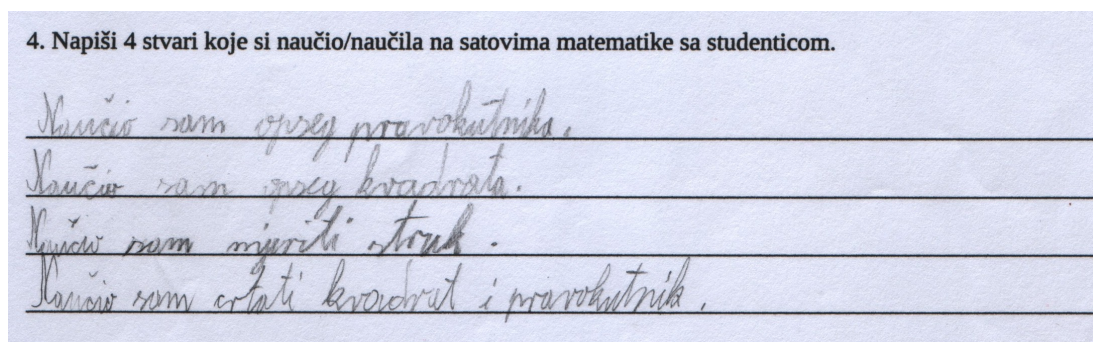 4. Napiši 4 stvari koje si naučio/naučila na satovima matematike sa studenticom.
Naučio sam opseg pravokutnika.
Naučio sam opseg kvadrata.
Naučio sam mjeriti struk.
Naučio sam crtati kvadrat i pravokutnik.